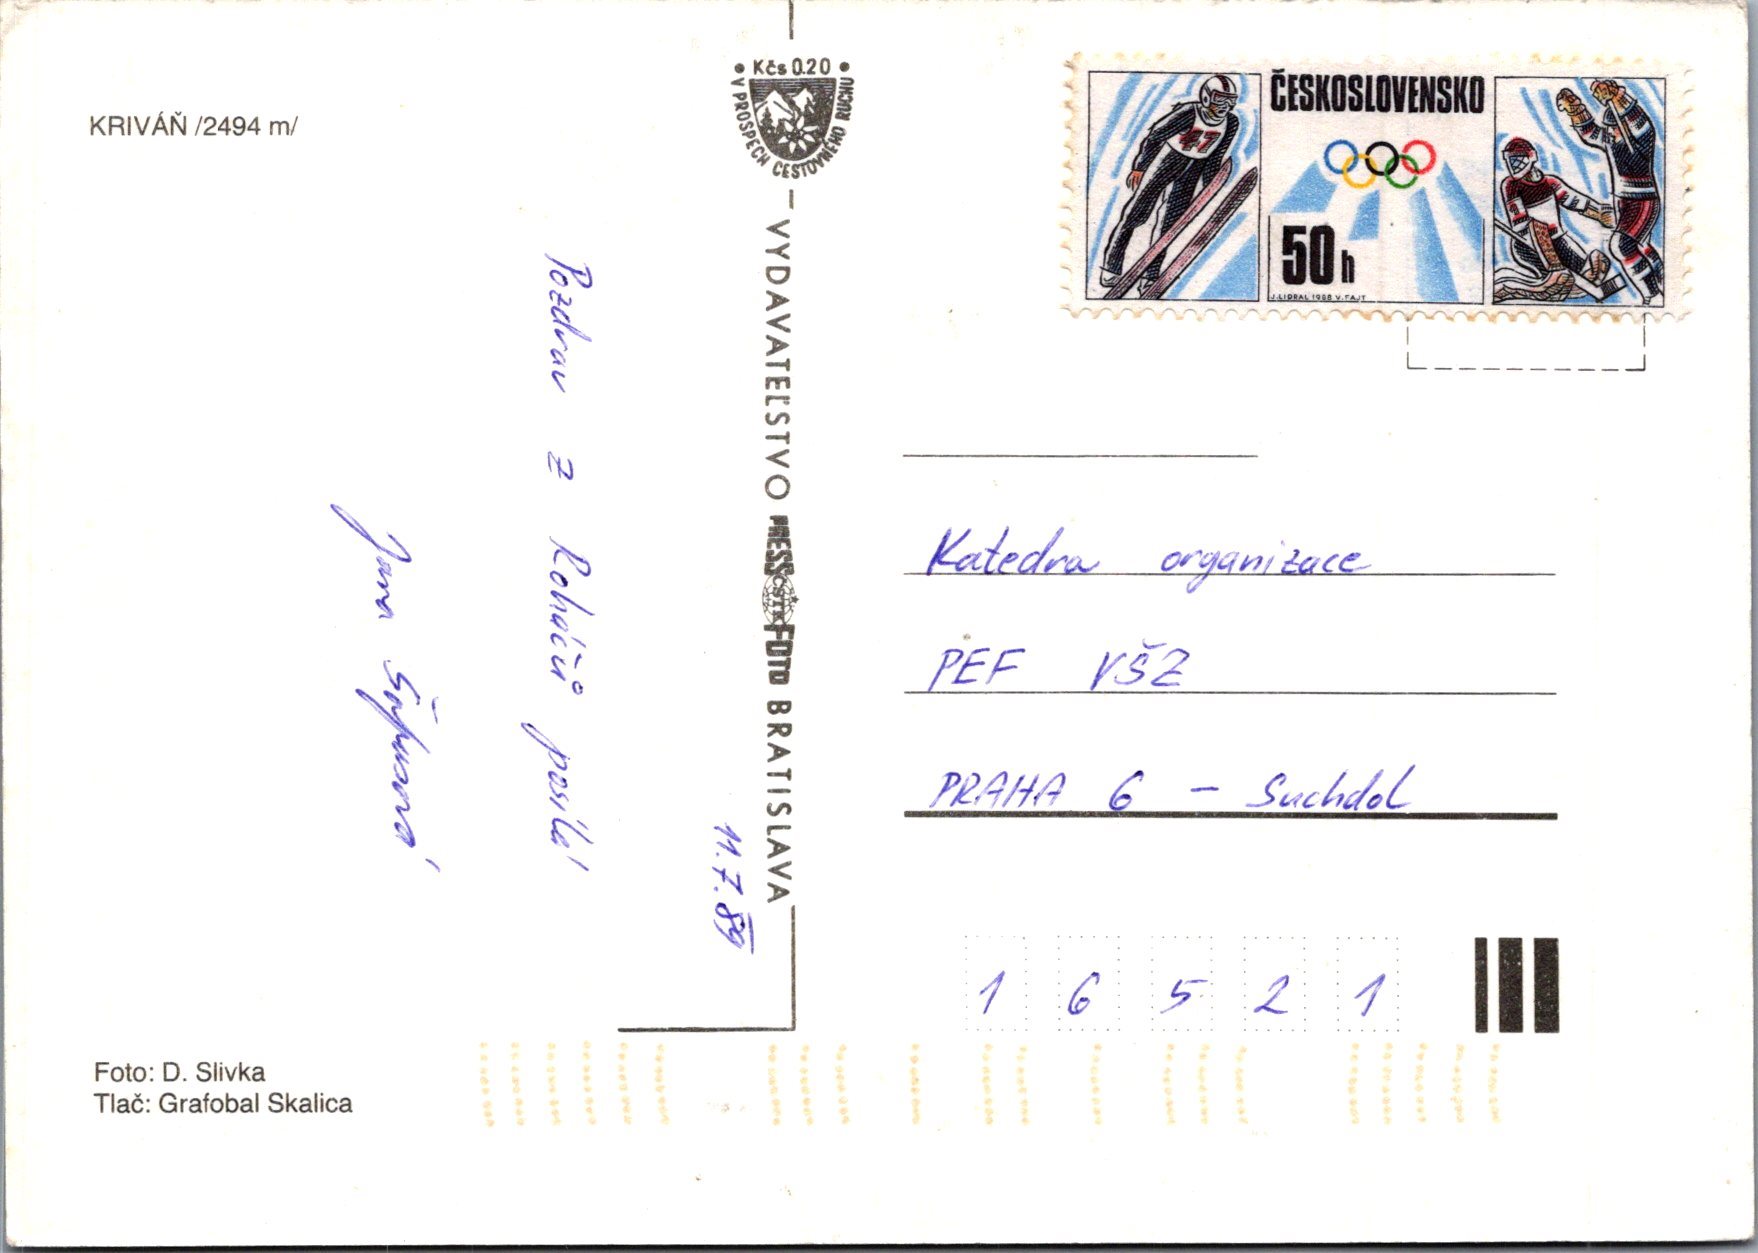 KRIVÁŇ /2494 m/
• Kčs 0.20 •
V PROSPECH CESTOVNÉHO RUCHU
ČESKOSLOVENSKO
47
50 h
J. LIDRAL 1988 V. FAJT
Pozdrav z Roháčů posílá
Jana
11.7.89
VYDAVATEĽSTVO PRESSFOTO BRATISLAVA
ČSTK
Katedra organizace
PEF VŠZ
PRAHA 6 - Suchdol
1 6 5 2 1
Foto: D. Slivka
Tlač: Grafobal Skalica